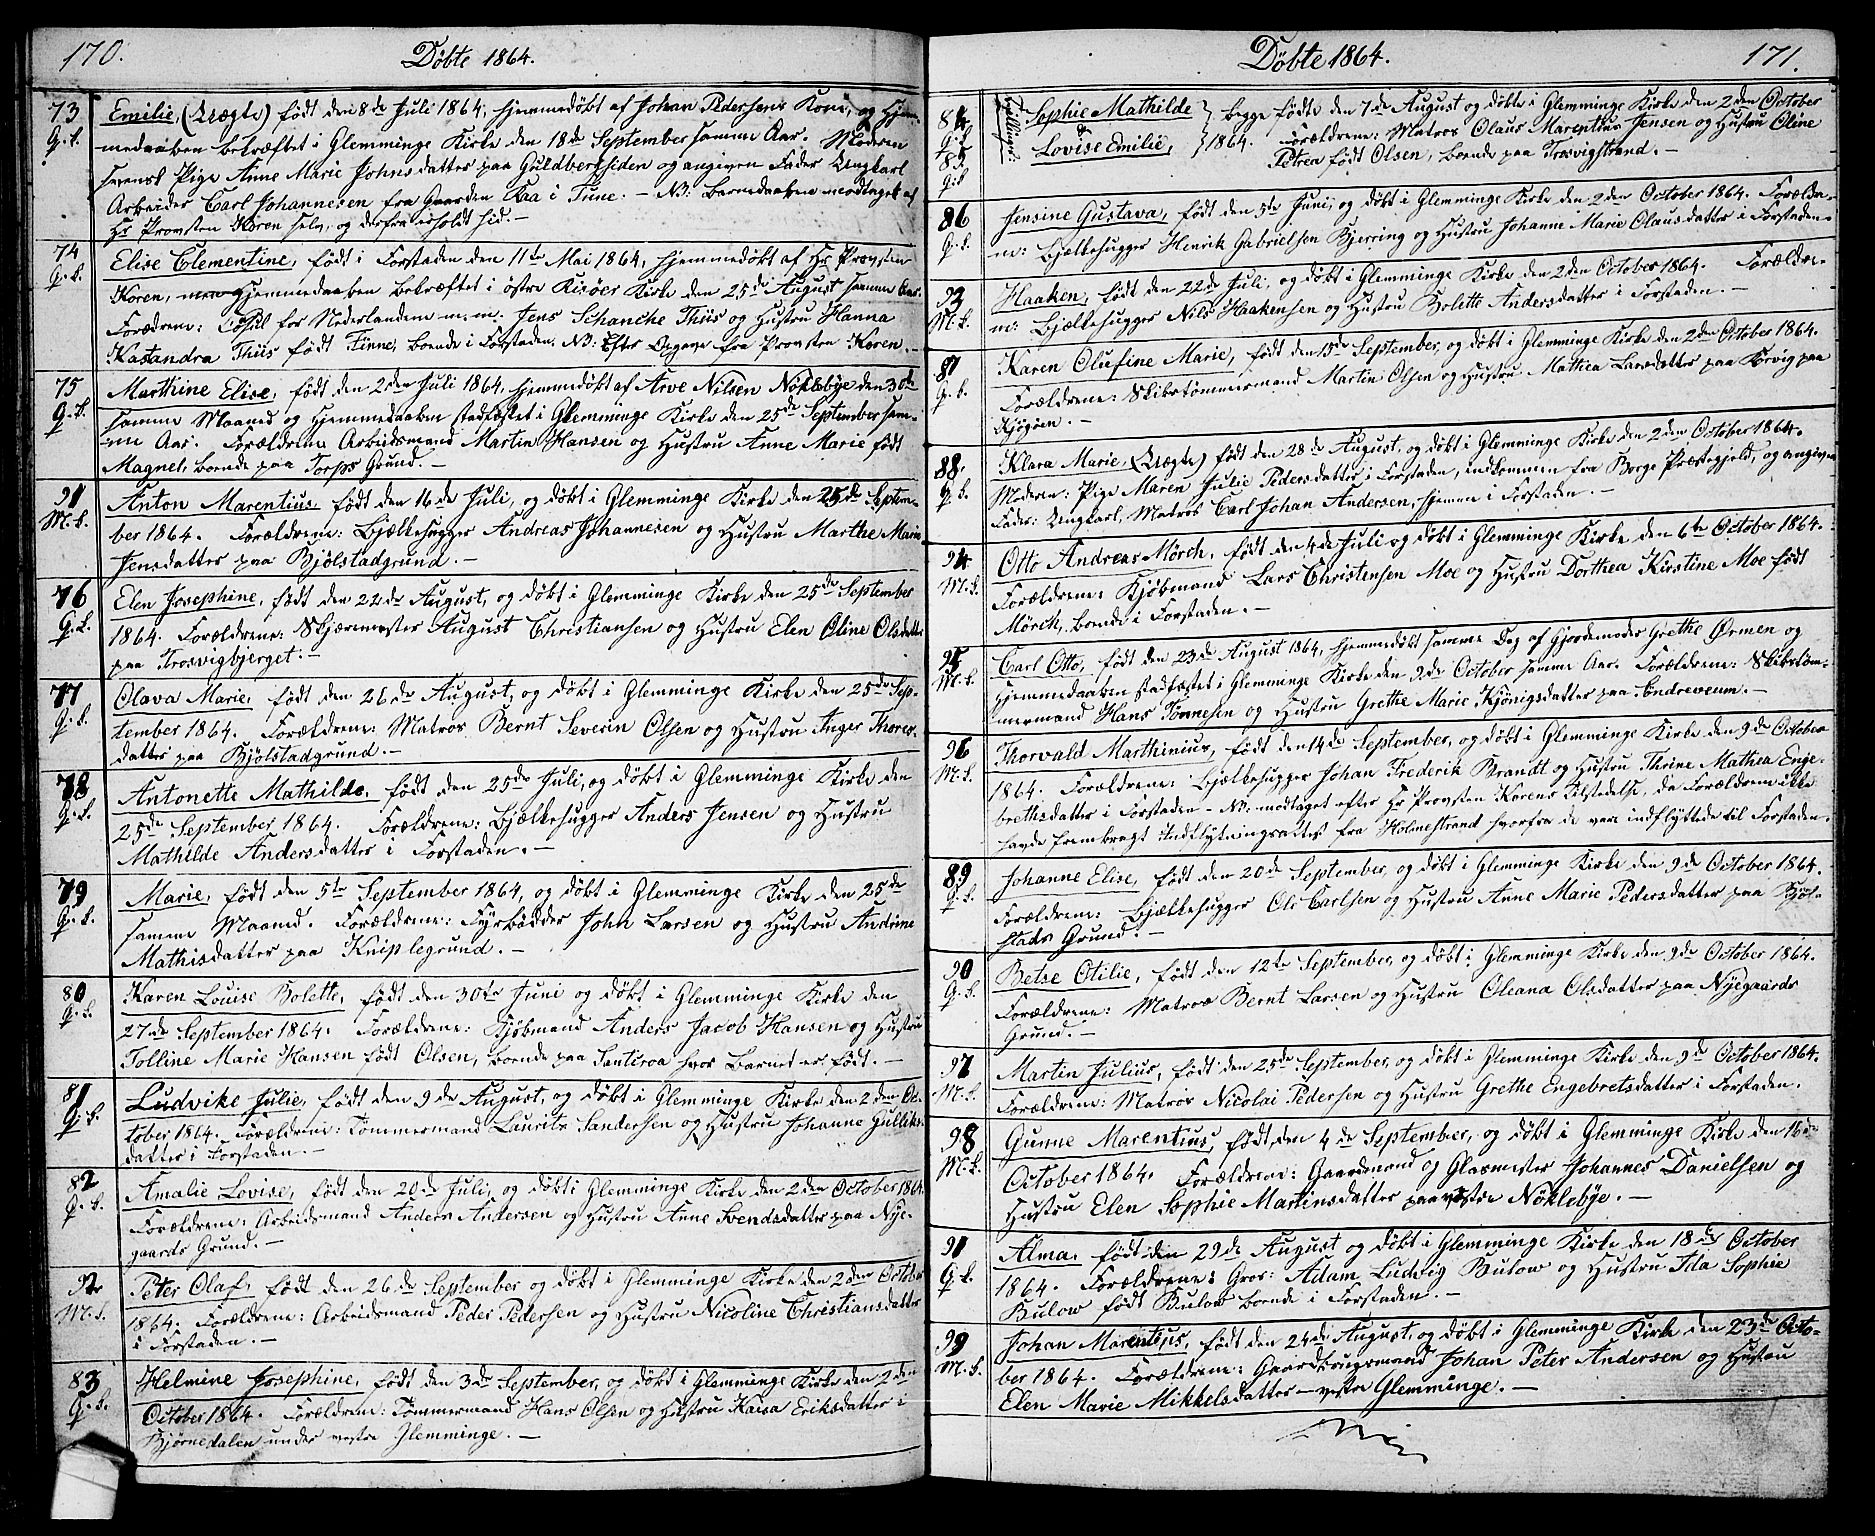 170.
Døbte 1864.
73
Q.k.
Emilie, (Uægte) født den 8de Juli 1864, hjemmedøbt af Johan Pedersens Kone, og Hjem-
medaaben bekræftet i Glemminge Kirke den 18de September samme Aar. Moderen
svensk Pige Anne Marie Johnsdatter paa Guldbergsiden og angiven Fader Ungkarl
Arbeider Carl Johannesen fra Gaarden Raa i Tune. — NB: Barnedaaben modtaget af
Hr Provsten Koren selv, og derfra erholdt hid. —
74
Q.k.
Elise Clementine, født i Forstaden den 11te Mai 1864, hjemmedøbt af Hr Provsten
Koren, men Hjemmedaaben bekræftet i østre Kirke den 25de August samme Aar.
Forældrene: for Nederlandene m.m. Jens Schanche Thiis og Hustru Hanna
Kastandra Thiis født Finne, boende i Forstaden. NB: Efter Opgave fra Provsten Koren. —
75
Q.k.
Marthine Elise, født den 2den Juli 1864, hjemmedøbt af Arve Nilsen Nøklebye den 30te
samme Maaned og Hjemmedaaben stadfæstet i Glemminge Kirke den 25de September sam-
me Aar. Forældrene Arbeidsmand Martin Hansen og Hustru Anne Marie født
Magnel, boende paa Torps Grund. —
91
M.k.
Anton Marentius, født den 16de Juli, og døbt i Glemminge Kirke den 25de Septem-
ber 1864. Forældrene: Bjælkehugger Andreas Johannesen og Hustru Marthe Marie
Jensdatter paa Bjølstadgrund. —
76
Q.k.
Elen Josephine, født den 22de August, og døbt i Glemminge Kirke den 25de September
1864. Forældrene: Skjæremester August Christiansen og Hustru Elen Oline Olsdatter
paa Trosvigbjerget. —
77
Q.k.
Olava Marie, født den 26de August, og døbt i Glemminge Kirke den 25de Sep-
tember 1864. Forældrene: Matros Bernt Severin Olsen og Hustru Inger Thores-
datter paa Bjølstadgrund. —
78
Q.k.
Antonette Mathilde, født den 25de Juli, og døbt i Glemminge Kirke den
25de September 1864. Forældrene: Bjælkehugger Anders Jensen og Hustru
Mathilde Andersdatter i Forstaden. —
79
Q.k.
Marie, født den 5te September 1864, og døbt i Glemminge Kirke den 25de
samme Maaned. Forældrene: Fyrbødder John Larsen og Hustru Andrine
Mathisdatter paa Kniplegrund. —
80
Q.k.
Karen Louise Bolette, født den 30te Juni og døbt i Glemminge Kirke den
27de September 1864. Forældrene: Kjøbmand Anders Jacob Hansen og Hustru
Tolline Marie Hansen født Olsen, boende paa Santiroa hvor Barnet er født. —
81
Q.k.
Ludvike Julie, født den 9de August, og døbt i Glemminge Kirke den 2den Oc-
tober 1864. Forældrene: Tømmermand Laurits Sandersen og Hustru Johanne Gulliks-
datter i Forstaden. —
82
Q.k.
Amalie Lovise, født den 20de Juli, og døbt i Glemminge Kirke den 2den October 1864.
Forældrene: Arbeidsmand Anders Andersen og Hustru Anne Svendsdatter paa Nye-
gaards Grund. —
92
M.k.
Peter Olaf, født den 26de September og døbt i Glemminge Kirke den 2den October
1864. Forældrene: Arbeidsmand Peder Pedersen og Hustru Nicoline Christiansdatter
i Forstaden. —
83
Q.k.
Helmine Josephine, født den 3de September, og døbt i Glemminge Kirke den 2den
October 1864. Forældrene: Tømmermand Hans Olsen og Hustru Kaisa Eriksdatter i
Bjørnedalen under vestre Glemminge. —
171.
Døbte 1864.
84
Q.k.
85
Q.k.
Tvillinger
Sophie Mathilde } begge fødte den 7de August og døbte i Glemminge Kirke den 2den October
&
Lovise Emilie, } 1864. Forældrene: Matros Olaus Marentius Jensen og Hustru Oline
Petrea født Olsen, boende paa Trosvigstrand. —
86
Q.k.
Jensine Gustava, født den 5te Juni, og døbt i Glemminge Kirke den 2den October 1864. Forældre-
ne: Bjelkehugger Henrik Gabrielsen Bjerring og Hustru Johanne Marie Olausdatter i Forstaden. —
93
M.k.
Haaken, født den 22de Juli, og døbt i Glemminge Kirke den 2den October 1864. Forældre-
ne: Bjælkehugger Nils Haakensen og Hustru Bolette Andersdatter i Forstaden. —
87
Q.k.
Karen Olufine Marie, født den 15de September, og døbt i Glemminge Kirke den 2den October 1864.
Forældrene: Skibstømmermand Martin Olsen og Hustru Mathea Larsdatter paa Torvig paa
Kjøgøen. —
88
Q.k.
Klara Marie, (Uægte) født den 28de August, og døbt i Glemminge Kirke den 2den October 1864.
Moderen: Pige Maren Julie Pedersdatter i Forstaden, indkommen fra Borge Præstegjeld, og angiven
Fader: Ungkarl, Matros Carl Johan Andersen, hjemme i Forstaden. —
94
M.k.
Otto Andreas Mörch, født den 4de Juli og døbt i Glemminge Kirke den 6te October 1864.
Forældrene: Kjøbmand Lars Christensen Moe og Hustru Dorthea Kirstine Moe født
Mörch, boende i Forstaden. —
95
M.k.
Carl Otto, født den 23de August 1864, hjemmedøbt samme Dag af Gjordemoder Grethe Ørmen og
Hjemmedaaben stadfæstet i Glemminge Kirke den 9de October samme Aar. Forældrene: Skibstøm-
mermand Hans Tönnesen og Hustru Grethe Marie Kjönigsdatter paa Andreveum. —
96
M.k.
Thorvald Marthinius, født den 14de September, og døbt i Glemminge Kirke den 9de October
1864. Forældrene: Bjelkehugger Johan Frederik Brandt og Hustru Thrine Mathea Enge-
brethsdatter i Forstaden. — NB. modtaget efter Hr Provsten Korens Tilstedelse, da Forældrene ikke
havde frembragt Indflytningsattest fra Holmestrand hvorfra de vare indflyttede til Forstaden.
89
Q.k.
Johanne Elise, født den 20de September, og døbt i Glemminge Kirke den 9de October 1864.
Forældrene: Bjælkehugger Ole Carlsen og Hustru Anne Marie Pedersdatter paa Bjøl-
stads Grund. —
90
Q.k.
Betse Otilie, født den 12te September, og døbt i Glemminge Kirke den 9de October 1864.
Forældrene: Matros Bernt Larsen og Hustru Oleana Olsdatter paa Nyegaards
Grund. —
97
M.k.
Martin Julius, født den 25de September, og døbt i Glemminge Kirke den 9de October 1864.
Forældrene: Matros Nicolai Pedersen og Hustru Grethe Engebretsdatter i Forstaden.
98
M.k.
Gunne Marentius, født den 4de September, og døbt i Glemminge Kirke den 16de
October 1864. Forældrene: Gaardmand og Glasmester Johannes Danielsen og
Hustru Elen Sophie Martinsdatter paa vestre Nöklebye. —
91
Q.k.
Alma, født den 29de August og døbt i Glemminge Kirke den 18de October
1864. Forældrene: Gros: Adam Ludvig Bulow og Hustru Ida Sophie
Bulow født Bulow boende i Forstaden. —
99
M.k.
Johan Marentius, født den 24de August, og døbt i Glemminge Kirke den 23de Octo-
ber 1864. Forældrene: Gaardbrugsmand Johan Peter Andersen og Hustru
Elen Marie Mikkelsdatter — vestre Glemminge. —